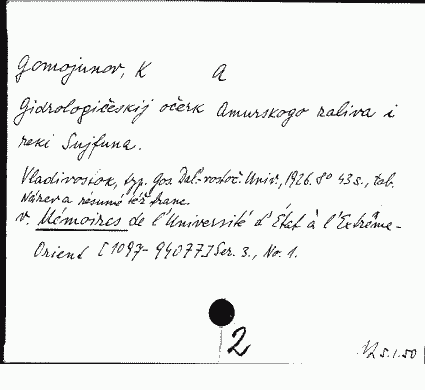 Gomojunov, K A
Gidrologičeskij očerk Amurskogo zaliva i
reki Sujfuna.
Vladivostok, typ. gos. Dal.-vostoč. Univ., 1926. 8° 43 s., tab.
Název a résumé též franc.
v. Mémoires de l'Université d'État à l'Extrême-
Orient [1097-94077] Ser. 3., No. 1.
2
5.1.50